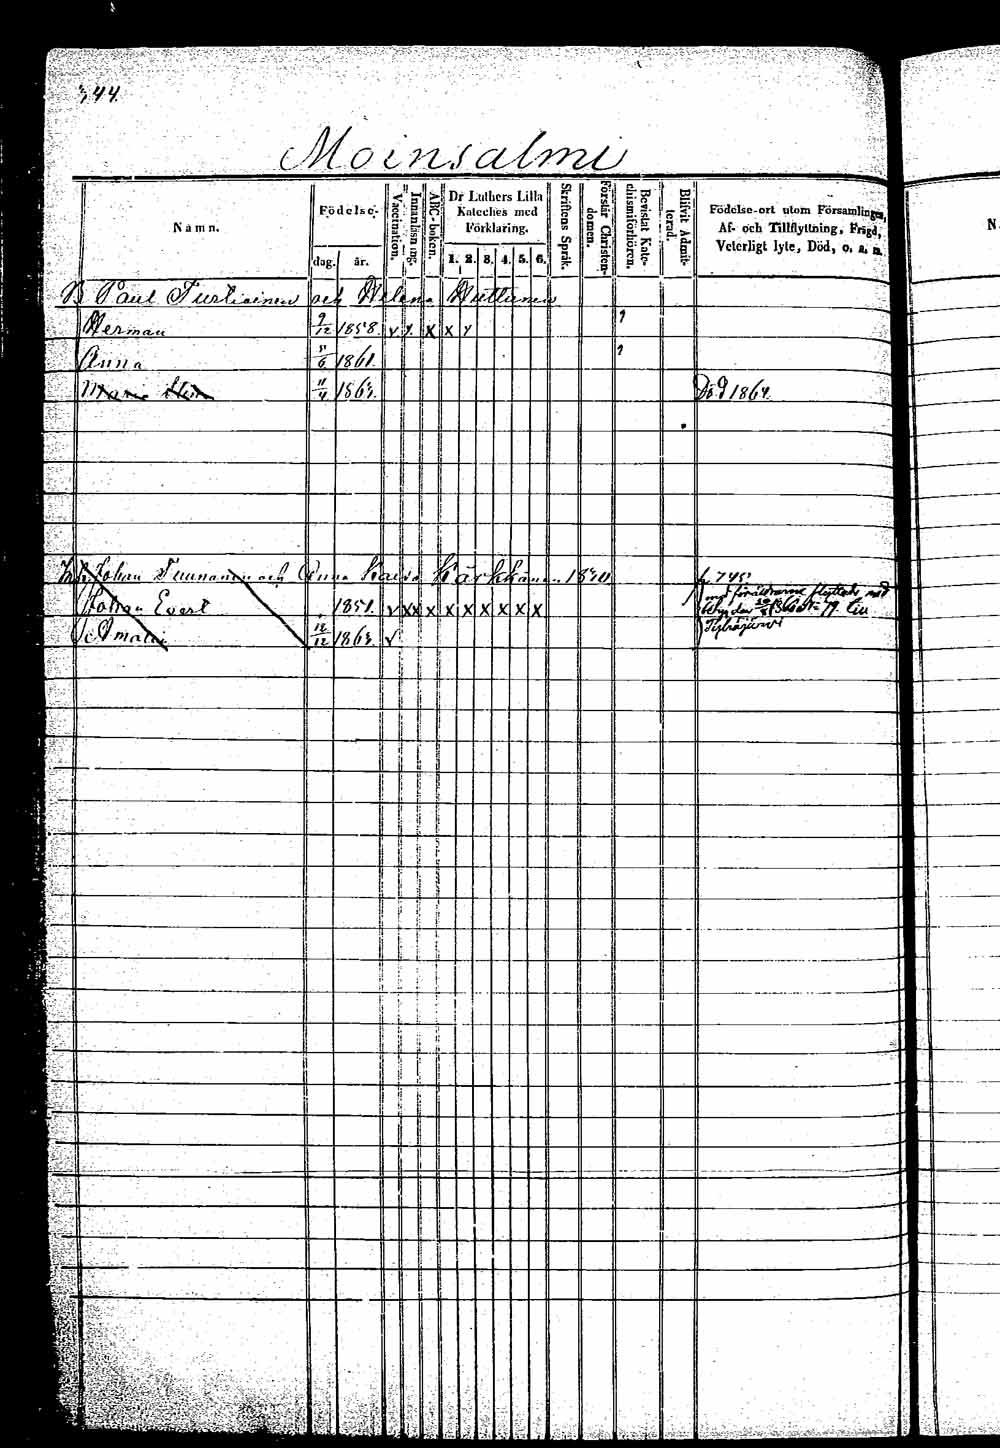 344.
Moinsalmi
Namn.
Födelse-
dag.
år.
Vaccination.
Innanläsning.
ABC-boken.
Dr Luthers Lilla Kateches med Förklaring.
1. 2. 3. 4. 5. 6.
Skriftens Språk.
Förstår Christendomen.
Bevistat Katechismiförhören.
Blifvit Admitterad.
Födelse-ort utom Församlingen,
Af- och Tillflyttning, Frägd,
Veterligt lyte, Död, o. a. m.
N.
B Paul Turtiainen och Helena Huttunen
Herman 9/12 1858. v x x x
Anna 1861.
Maria 11/4 1863. Död 1864.
Johan Tuunanen och Anna Kaisa Kärkkäinen p. 745
Johan Evert 1851. v x x x x x x x x x med föräldrarne flyttade med
Amalia 12/12 1863. v